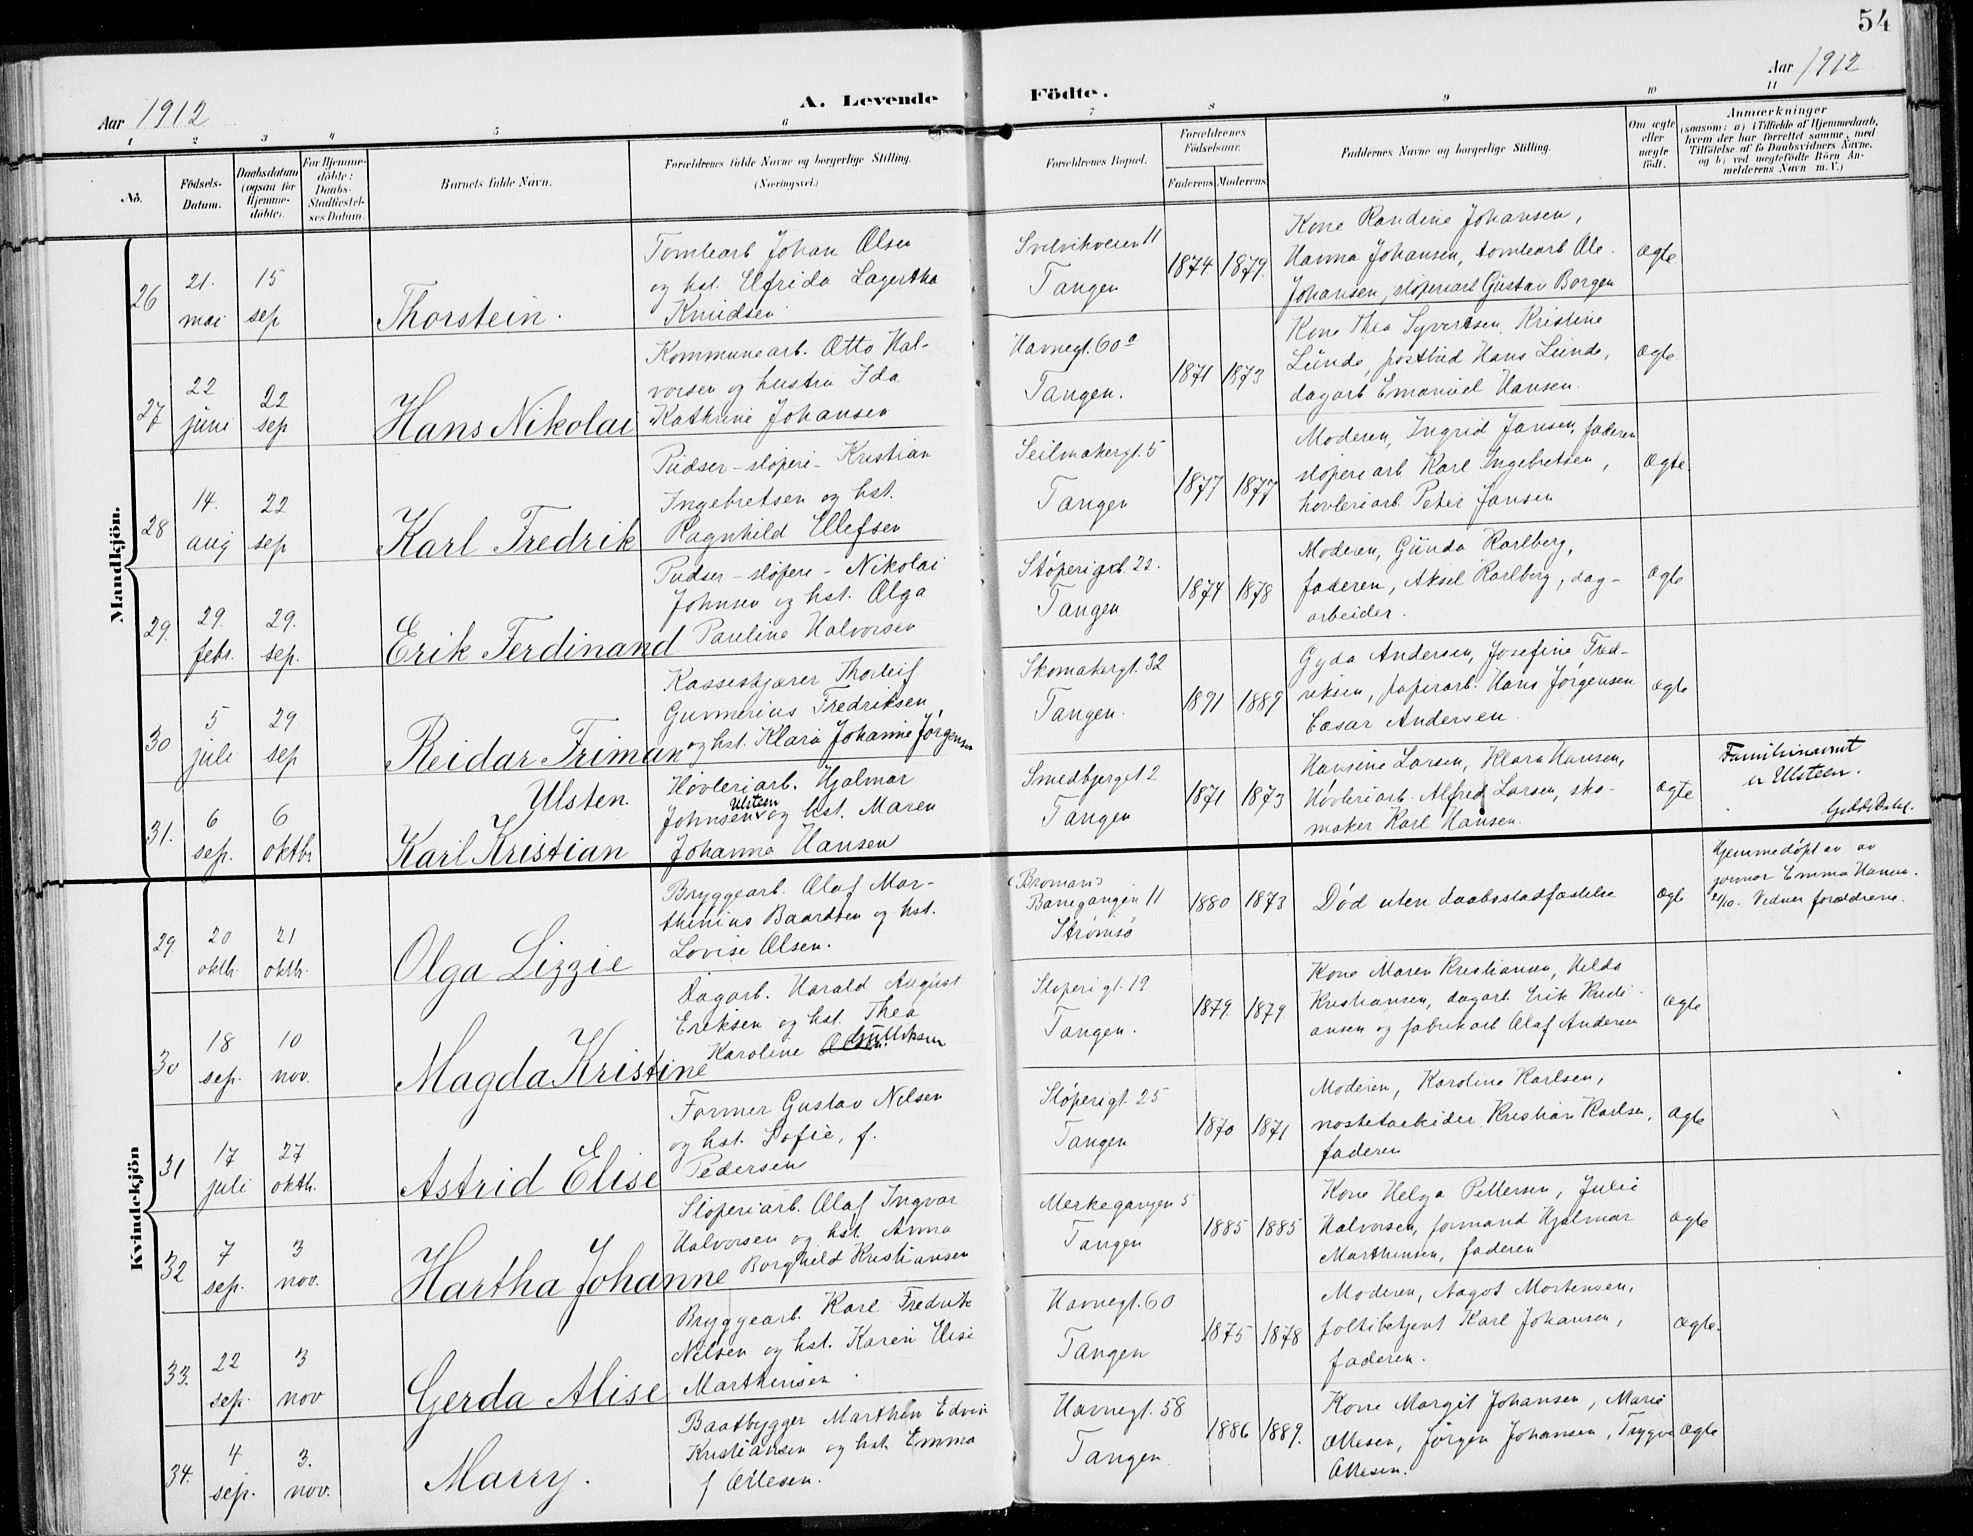 54
Aar 1912
A. Levende Födte.
Aar 1912
1 2 3 4 5 6 7 8 9 10 11
No.
Födsels-
Datum.
Daabsdatum
(ogsaa for
Hjemme-
döbte).
For Hjemme-
döbte:
Daabs-
Stadfæstel-
ses Datum.
Barnets fulde Navn.
Forældrenes fulde Navne og borgerlige Stilling.
(Næringsvei.)
Forældrenes Bopæl.
Forældrenes
Födselsaar.
Faderens Moderens
Faddernes Navne og borgerlige Stilling.
Om ægte
eller
uægte
født.
Anmærkninger
(saasom: a) i Tilfælde af Hjemmedaab,
hvem der har forrettet samme, med
Tilföielse af to Daabsvidners Navne,
og b) ved uægtefödte Börn An-
melderens Navn m. V.)
Mandkjön.
26
21.
mai
15
sep
Thorstein.
Tomtearb Johan Olsen
og hst. Elfrida Lagertha
Knudsen
Svelvikveien 11
Tangen
1874 1879.
Kone Randine Johansen,
Hanna Johansen, tomtearb Ole
Johansen, støperiarb Gustav Borgen
Ægte
27
22
juni
22
sep
Hans Nikolai
Kommunearb. Otto Hal-
vorsen og hustru Ida
Kathrine Johansen
Havnegt. 60a
Tangen.
1871 1873
Kone Thea Syvertsen, Kristine
Lunde, postbud Hans Lunde,
dagarb Emanuel Hansen.
Ægte.
28
14.
aug
22
sep
Karl Fredrik
Pudser - støperi - Kristian
Ingebretsen og hst.
Ragnhild Ellefsen
Seilmakergt. 5
Tangen
1877 1877
Moderen, Ingrid Jansen, faderen
støperiarb Karl Ingebretsen,
høvleriarb. Peter Jansen
Ægte
29.
29.
febr.
29.
sep.
Erik Ferdinand
Pudser - støperi - Nikolai
Johnsen og hst. Olga
Pauline Halvorsen
Støperigt. 22.
Tangen
1874 1878
Moderen, Gunda Karlberg,
faderen, Aksel Karlberg, dag-
arbeider.
Ægte
30
5
juli
29
sep
Reidar Friman
Kasseskjærer Thorleif
Gunnerius Fredriksen,
og hst. Klara Johanne Jørgensen
Skomakergt. 32
Tangen.
1891 1889
Gyda Andersen, Josefine Fred-
riksen, papirarb. Hans Jørgensen
Cæsar Andersen.
Ægte
31.
6
sep.
6
oktbr
Ulsten.
Karl Kristian
Høvleriarb. Hjalmar
Ulsteen
Johnsen og hst. Maren
Johanna Hansen
Smedbjerget 2
Tangen
1871 1873
Hansine Larsen, Klara Hansen,
Høvleriarb. Alfred Larsen, sko-
maker Karl Hansen.
Ægte
Familienavnet
er Ulsteen.
Kvindekjön
29.
20
oktb.
21
oktb.
Olga Lizzie
Bryggearb. Olaf Mar-
thinius Baardsen og hst.
Lovise Olsen.
Banegangen 11
Strømsø
1880 1873
Død uten daabsstadfæstelse
Ægte
Hjemmedøpt av
jormor Emma Hansen
21/10. Vidner forældrene.
30
18
sep.
10
nov.
Magda Kristine
Dagarb. Harald August
Eriksen og hst. Thea
Karoline Gulliksen
Støperigt. 19
Tangen.
1879. 1879
Kone Maren Kristiansen, Hilda
Kristiansen, dagarb. Erik Kristi-
ansen og fabrikarb Olaf Andersen
Ægte
31
17
juli
27
oktb.
Astrid Elise
Former Gustav Nilsen
og hst. Sofie, f.
Pedersen
Støperigt. 25
Tangen
1870 1871
Moderen, Karoline Karlsen,
Kristian Karlsen,
faderen
Ægte
32
7
sep.
3
nov.
Hartha Johanne
Støperiarb. Olaf Ingvar
Halvorsen og hst. Anna
Borghild Kristiansen
Merkegangen 5
Tangen
1885 1885
Kone Helga Pettersen, Julie
Halvorsen, formand Hjalmar
Marthinsen, faderen
Ægte
33.
22
sep.
3
nov
Gerda Alise
Bryggearb. Karl Fredrik
Nilsen og hst. Karen Elise
Marthinsen.
Havnegt. 60
Tangen
1875 1878
Moderen, Aagot Mortensen,
politibetjent Karl Johansen,
faderen.
Ægte.
34.
4
sep.
3.
nov.
Marry.
Baatbygger Marthin Edvin
Kristiansen og hst. Emma
f Ottesen.
Havnegt. 58
Tangen
1886 1889.
Kone Margit Johansen, Marie
Ottesen, Jørgen Johansen, Trygve
Ottesen.
Ægte